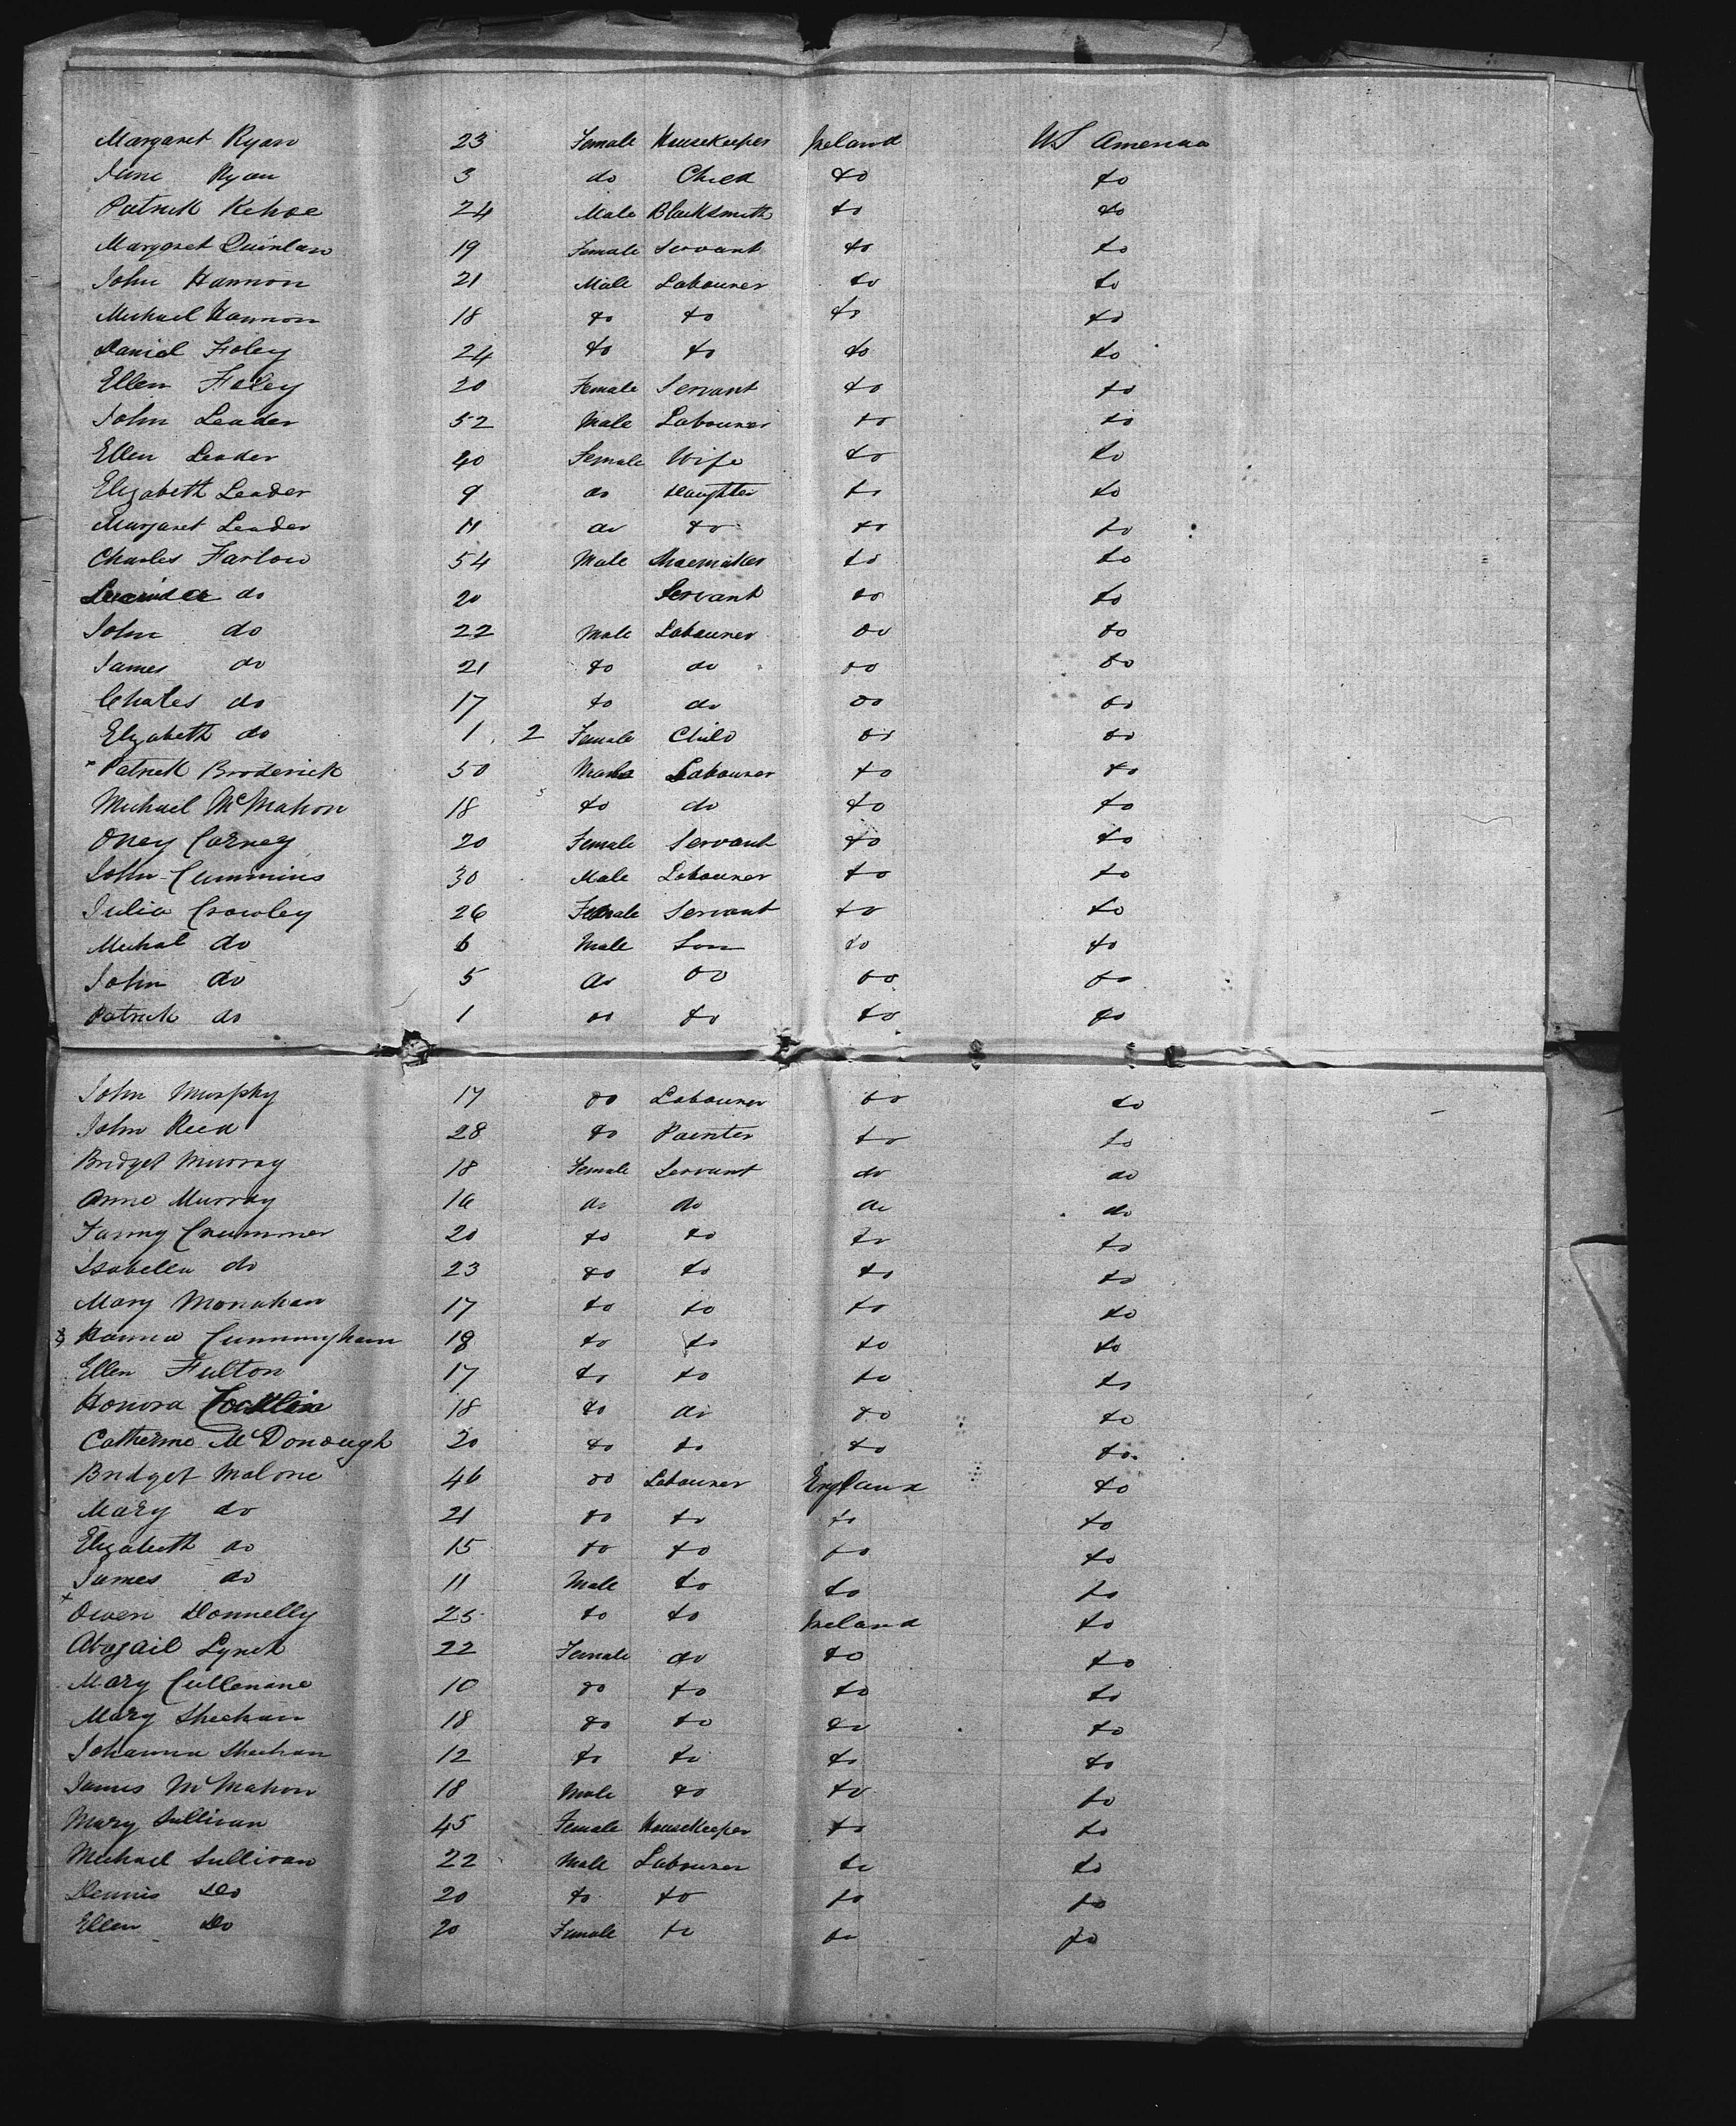 Margaret Ryan 23 Female Housekeeper Ireland US America
Jane Ryan 3 do Child do do
Patrick Kehoe 24 Male Blacksmith do do
Margaret Quinlan 19 Female Servant do do
John Hannon 21 Male Labourer do do
Michael Hannon 18 do do do do
Daniel Foley 24 do do do do
Ellen Foley 20 Female Servant do do
John Leader 52 Male Labourer do do
Ellen Leader 40 Female Wife do do
Elizabeth Leader 9 do Daughter do do
Margaret Leader 11 do do do do
Charles Farlow 54 Male Shoemaker do do
do 20 Servant do do
John do 22 Male Labourer do do
James do 21 do do do do
Charles do 17 do do do do
Elizabeth do 1 2 Female Child do do
Patrick Broderick 50 Male Labourer do do
Michael McMahon 18 do do do do
Oney Carney 20 Female Servant do do
John Cummins 30 Male Labourer do do
Julia Crowley 26 Female Servant do do
Michal do 6 Male Son do do
John do 5 do do do do
Patrick do 1 do do do do
John Murphy 17 do Labourer do do
John Reed 28 do Painter do do
Bridget Murray 18 Female Servant do do
Anne Murray 16 do do do do
Fanny Crummer 20 do do do do
Isabella do 23 do do do do
Mary Monahan 17 do do do do
Hanna Cunningham 18 do do do do
Ellen Fulton 17 do do do do
Honora 18 do do do do
Catherine McDonough 20 do do do do
Bridget Malone 46 do Labourer England do
Mary do 21 do do do do
Elizabeth do 15 do do do do
James do 11 Male do do do
x Owen Donnelly 25 do do Ireland do
Abagail Lynch 22 Female do do do
Mary Cullenane 10 do do do do
Mary Sheehan 18 do do do do
Johanna Sheehan 12 do do do do
James McMahon 18 Male do do do
Mary Sullivan 45 Female Housekeeper do do
Michael Sullivan 22 Male Labourer do do
Dennis Do 20 do do do do
Ellen Do 20 Female do do do